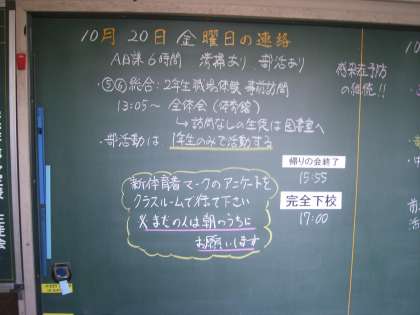 10月 20日 金曜日の連絡
A日課 6時間 清掃あり 部活あり
・⑤⑥総合:2年生職場体験 事前訪問
13:05〜 全体会(体育館)
↳訪問なしの生徒は図書室へ
・部活動は 1年生のみで活動する
感染症予防
の継続!!
帰りの会終了
15:55
完全下校
17:00
新体育着マークのアンケートを
クラスルームで行って下さい
※まだの人は朝のうちに
お願いします
10